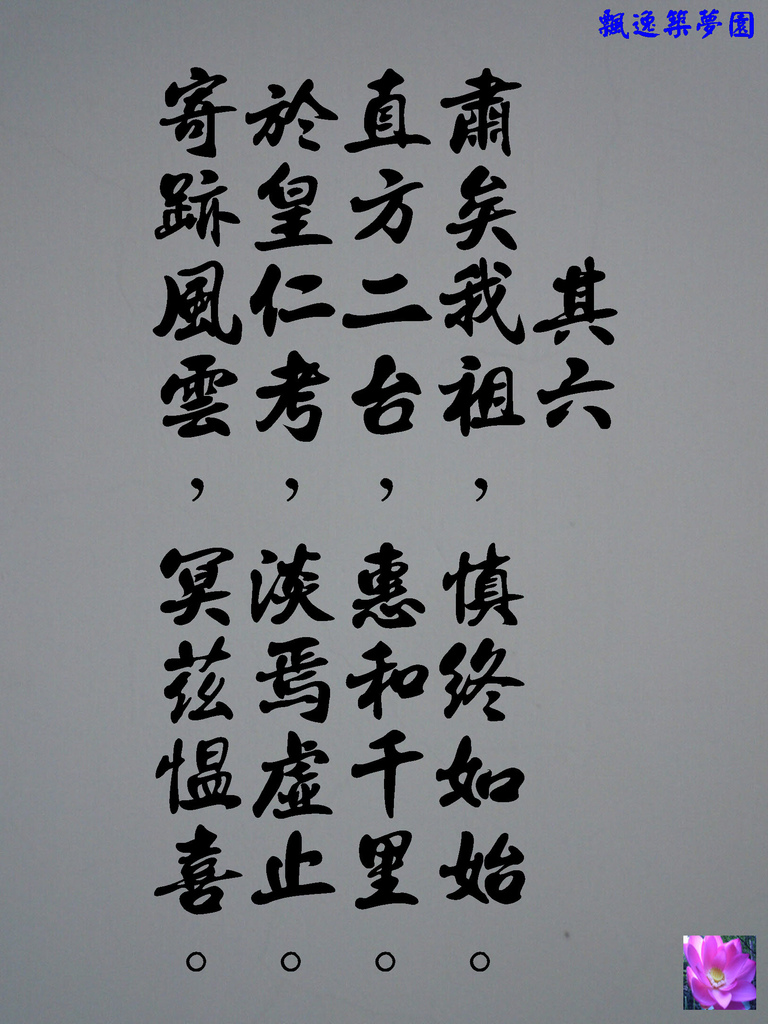 飄逸築夢園
其六
肅矣我祖，慎終如始。
直方二台，惠和千里。
於皇仁考，淡焉虛止。
寄跡風雲，冥茲愠喜。